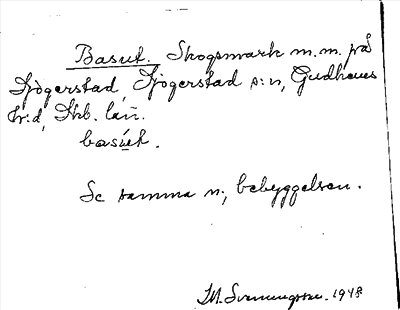 Basut. Skogsmark m.m. på
Sjögerstad, Sjögerstad s:n, Gudhems
hr:d, Skb. län.
basu̲t.
Se samma n., bebyggelsen.
M. Svenungsson. 1948